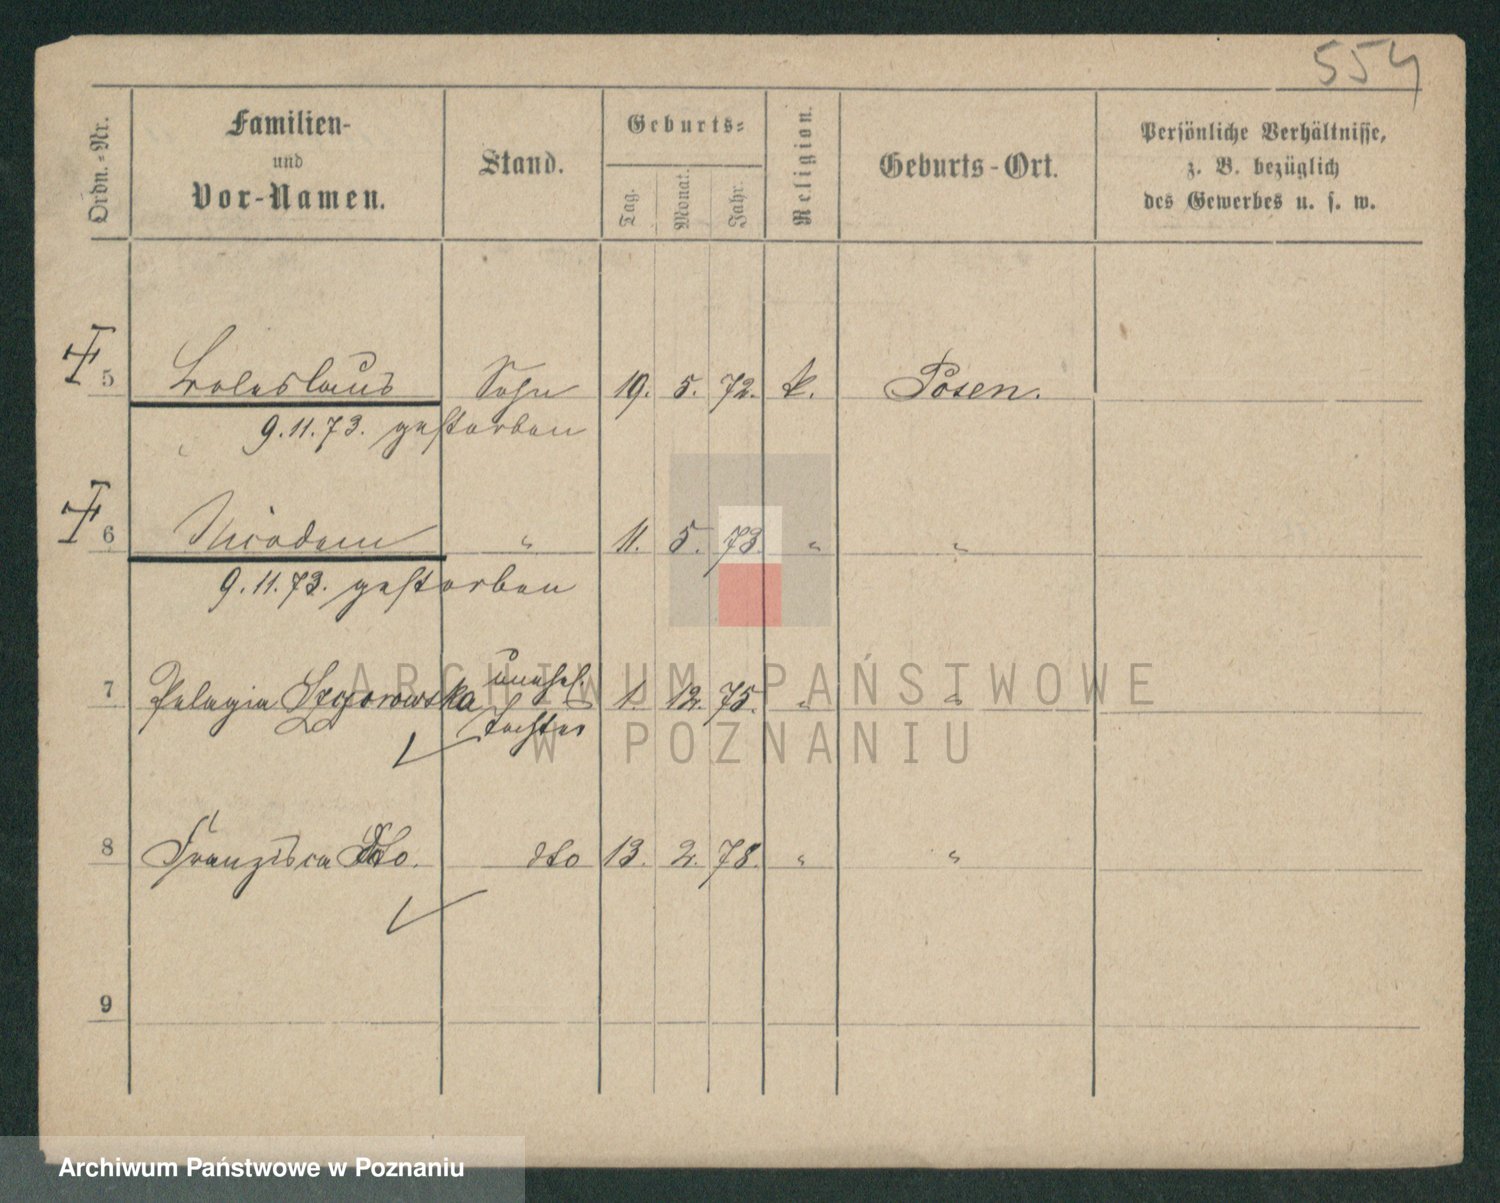 554
Ordn.-Nr.
Familien-
und
Vor-Namen.
Stand.
Geburts-
Tag.
Monat.
Jahr.
Religion.
Geburts-Ort.
Persönliche Verhältnisse,
z. B. bezüglich
des Gewerbes u. s. w.
5 Boleslaus Sohn 19. 5. 72. k. Posen.
9.11.73. gestorben
6 Nicodem " 11. 5. 73 " "
9.11.73. gestorben
7 Pelagia unehel. 1. 12. 75. " "
Tochter
8 Franziska dto. dto 13. 2. 78. " "
9
ARCHIWUM PAŃSTWOWE
W POZNANIU
Archiwum Państwowe w Poznaniu